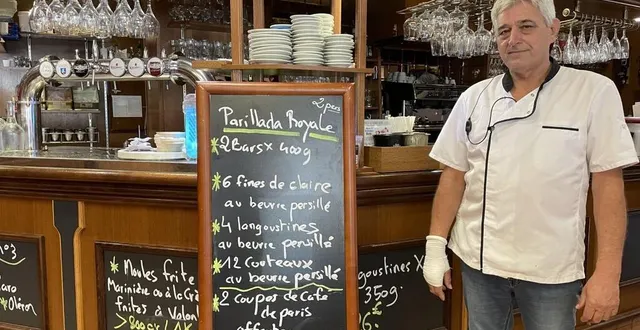 2 pers
Parillada Royale
*2 Bars x 400g
*6 fines de claire
au beurre persillé
*4 langoustines
au beurre persillé
*12 Couteaux
au beurre persillé
*2 Coupes de Café
de paris
N°3
Oléron
*Moules frite
Marinière ou à la Crè
frites à Volon
>800gr
langoustines X
350g